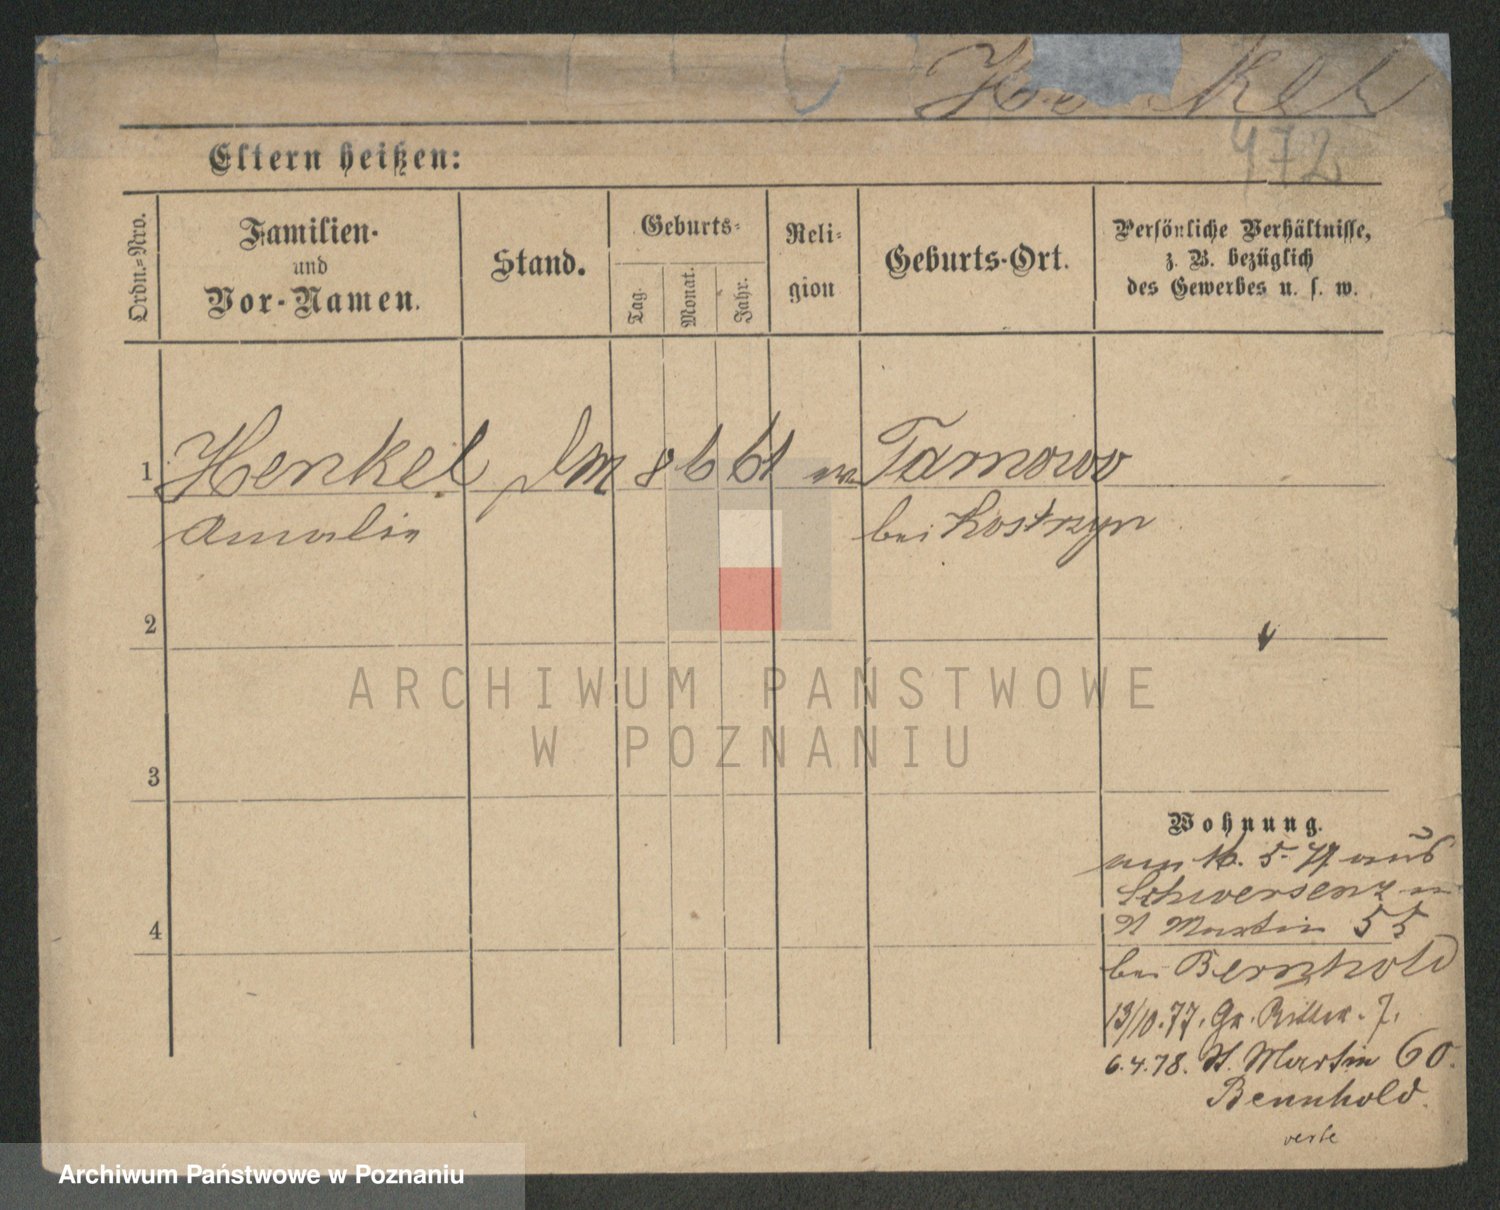 Henkel
472
Eltern heißen:
Ordn.=Nro.
Familien-
und
Vor-Namen.
Stand.
Geburts-
Tag.
Monat.
Jahr.
Reli-
gion
Geburts-Ort.
Persönliche Verhältnisse,
z. B. bezüglich
des Gewerbes u. s. w.
1 Henkel 8 6 61 Tarnowo
Amalie bei Kostrzyn
2
ARCHIWUM PAŃSTWOWE
W POZNANIU
3
Wohnung.
16. 5. 77 aus
Schwersenz
4
St Martin 55
bei Bernhold
13/10.77. Gr. Ritter. 7.
6.4.78. St. Martin 60.
Bennhold.
verte
Archiwum Państwowe w Poznaniu